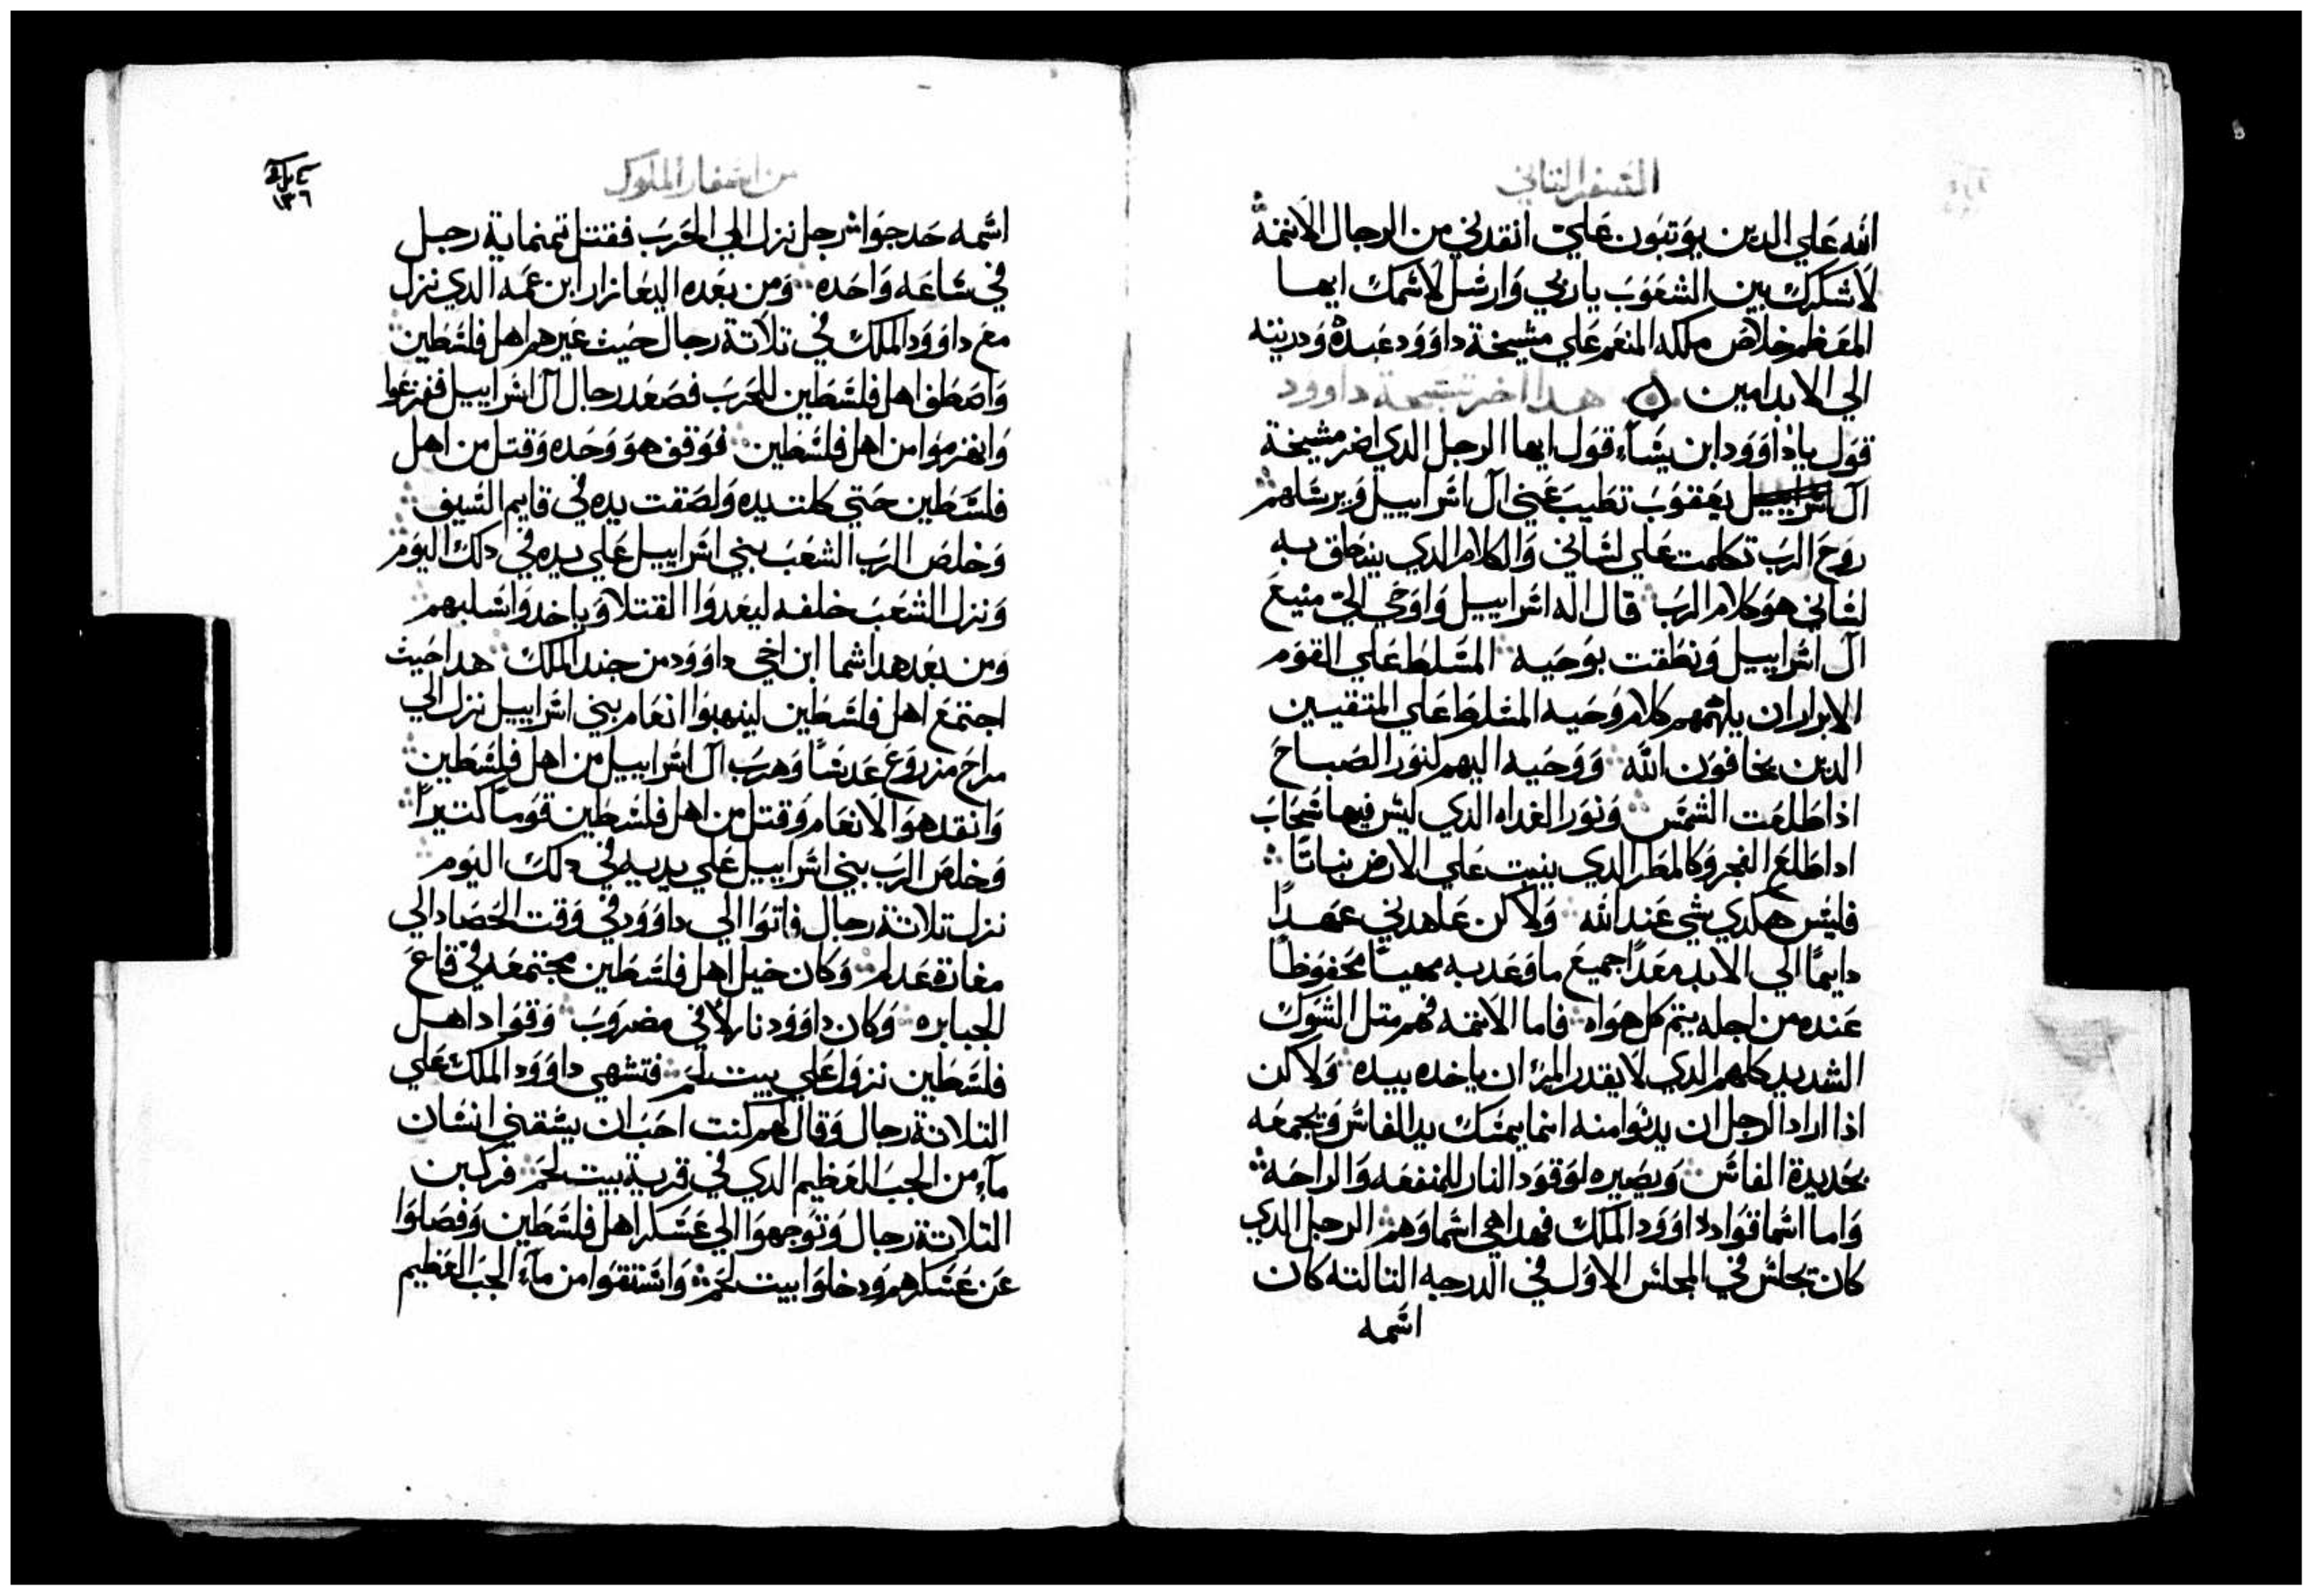 السفر التاني
الله علي الدين يوتبون علي انقدني من الرجال الاتمة
لاشكرك بين الشعوب ياربي وارسل لاسمك ايها
المعظم خلاص ملكه المنعم علي مشيخة داوود عبده ودريته
الي الابد امين هدا اخر تسبحة داوود
قول ياداوود ابن يساء قول ايها الرجل الدي مشيخة
آل يعقوب تطيب غني آل اسراييل
روح الرب تكلمت علي لساني والكلام الدي ينطق به
لساني هو كلام الرب قال اله اسراييل واوحي الي منيع
آل اسراييل ونطقت بوحيه المسلط علي القوم
الابرار ان يلهمهم كلام وحيه المسلط علي المتقيين
الدين يخافون الله ووحيه اليهم كنور الصباح
اذا طلعت الشمس ونور الغداه الدي ليس فيها سحاب
ادا طلع الفجر وكالمطر الدي ينبت علي الارض نباتا
فليس هكدي شي عند الله ولاكن عاهدني عهدا
دايما الي الابد معدا جميع ماوعد به مهيا محفوظا
عنده من اجله يتم كل هواه فاما الاتمه فهم متل الشوك
الشديد كلهم الدي لا يقدر المرء ان ياخده بيده ولاكن
اذا اراد الرجل ان يدنوا منه انما يمسك يد الفاس ويجمعه
بحديدة الفاس ويصيره لوقود النار للمنفعه والراحه
واما اسما قواد داوود الملك فهدا هي اسماوهم الرجل الدي
كان يجلس في المجلس الاول في الدرجه التالته كان
اسمه
من اسفار الملوك
١٣٦
اسمه حدجواس رجل نزل الي الحرب فقتل تمنماية رجل
في ساعه واحده ومن بعده اليعازار ابن عمه الدي نزل
مع داوود الملك في تلاتة رجال حيث عيرهم اهل فلسطين
واصطف اهل فلسطين للحرب فصعد رجال آل اسراييل ففزعوا
وانهزموا من اهل فلسطين فوقف هو وحده وقتل من اهل
فلسطين حتي كلت يده ولصقت يده في قايم السيف
وخلص الرب الشعب بني اسراييل علي يده في دلك اليوم
ونزل الشعب خلفه ليعدوا القتلا وياخدوا سلبهم
ومن بعد هدا شما ابن اخي داوود من جند الملك هدا حيث
اجتمع اهل فلسطين لينهبوا انعام بني اسراييل نزل الي
مراح مزروع عدسا وهرب آل اسراييل من اهل فلسطين
وانقد هو الانعام وقتل من اهل فلسطين قوما كتيرا
وخلص الرب بني اسراييل علي يديه في دلك اليوم
نزل تلاتة رجال فاتوا الي داوود في وقت الحصاد الي
مغارة عدلم وكان خيل اهل فلسطين مجتمعه في قاع
الجبابره وكان داوود نازلا في مضروب وقواد اهل
فلسطين نزول علي بيت لحم فتشهي داوود الملك علي
التلاتة رجال وقال لهم كنت احب ان يسقني انسان
ماء من الجب العظيم الدي في قرية بيت لحم فركبن
التلاتة رجال وتوجهوا الي عسكر اهل فلسطين وفصلوا
عن عسكرهم ودخلوا بيت لحم واستقوا من ماء الجب العظيم